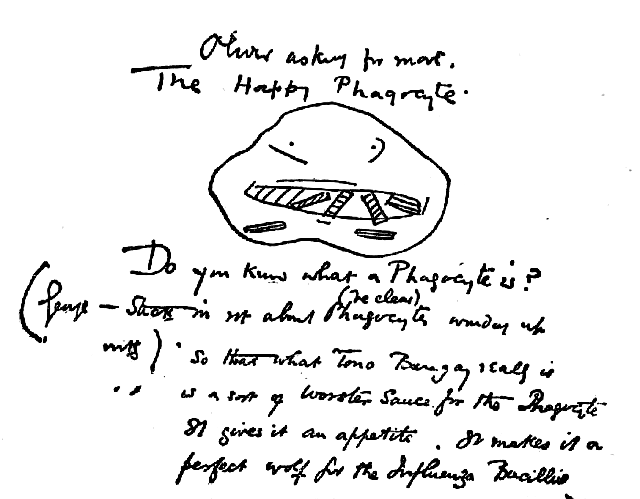 Oliver asking for more.
The Happy Phagocyte.
Do you know what a Phagocyte is?
(be clear)
(George — in about Phagocytes up
with)
So that what Tono Bungay really is
is a sort of Worster Sauce for the Phagocyte
It gives it an appetite. It makes it a
perfect wolf for the Influenza Bacillus